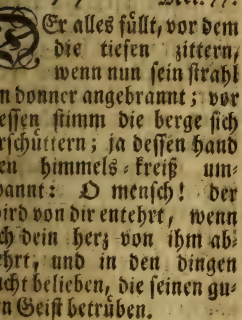 DEr alles füllt, vor dem
die tiefen zittern,
wenn nun sein strahl
n donner angebrannt; vor
essen stimm die berge sich
rschüttern; ja dessen hand
en himmels-kreiß um-
pannt: O mensch! der
ird von dir entehrt, wenn
ch dein herz von ihm ab-
ehrt, und in den dingen
ucht belieben, die seinen gu-
n Geist betrüben.